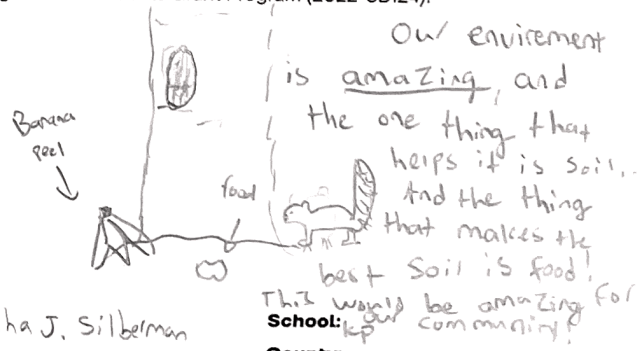 Program
Our envirement
is amazing, and
the one thing that
helps it is soil.
And the thing
that makes the
best soil is food!
This would be amazing for
our community!
Banana
peel
food
ha J. Silberman
School: